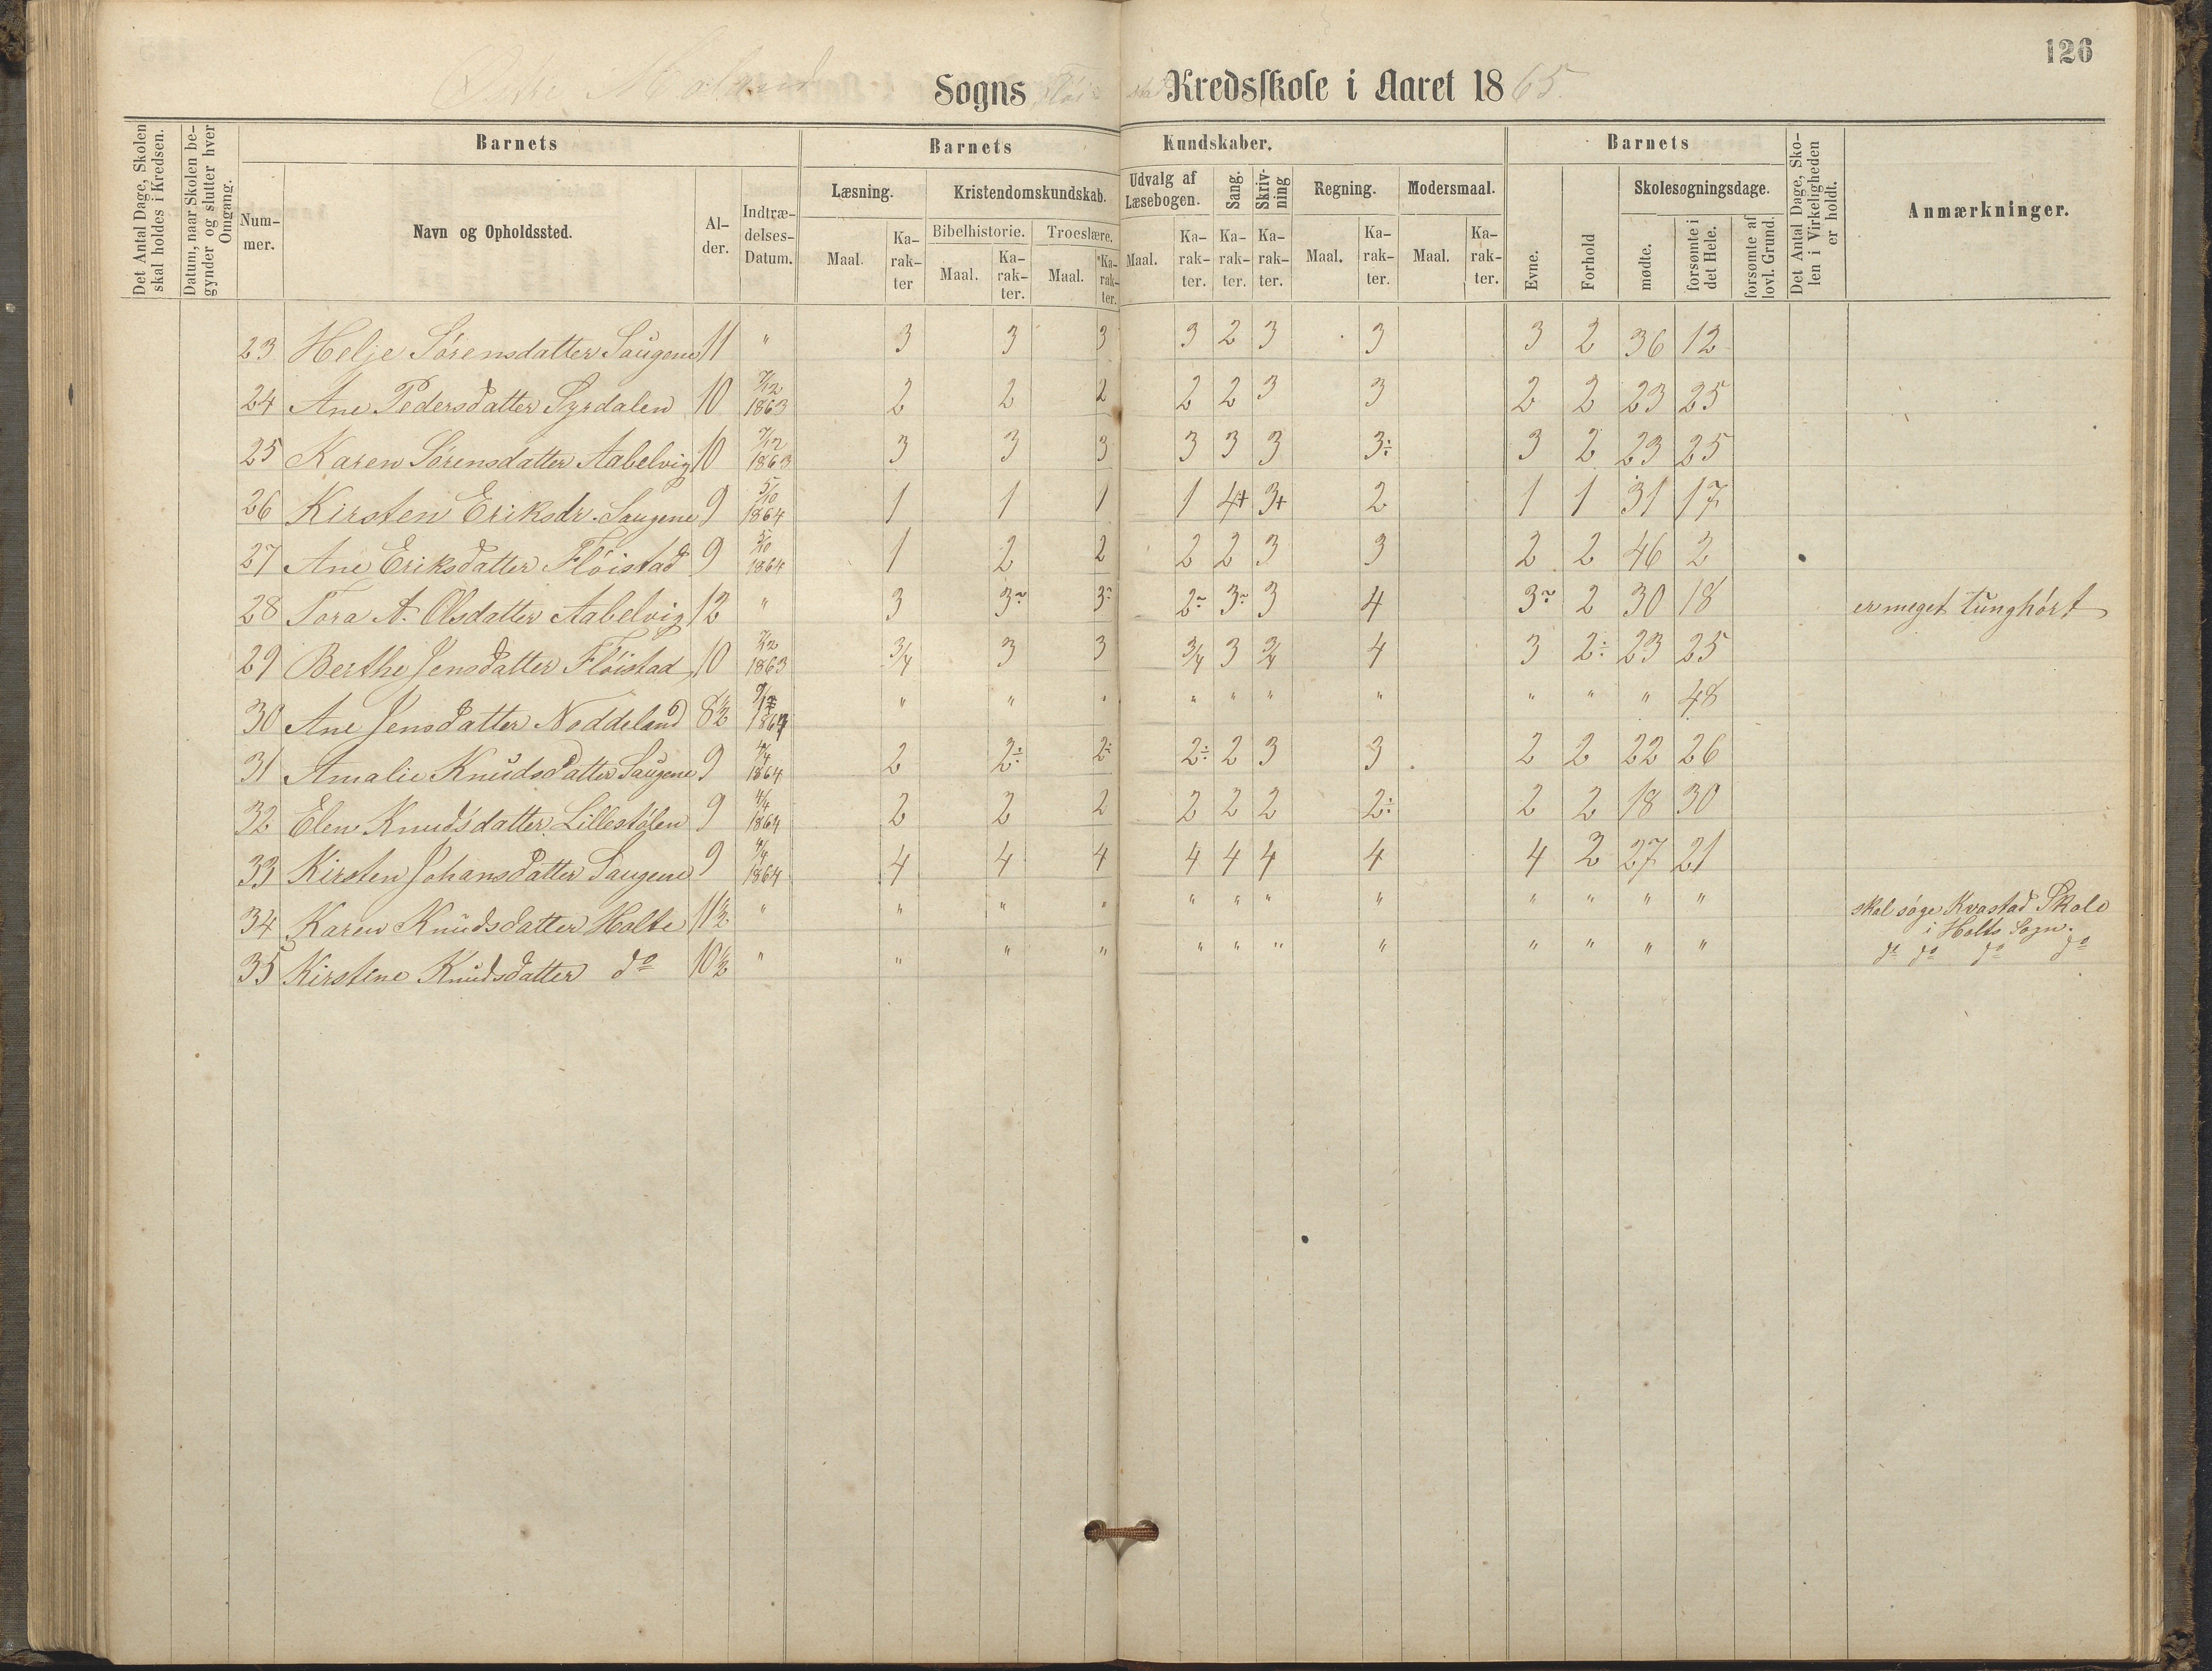 126
Østre Moland Sogns Fløistad Kredsskole i Aaret 1865.
Det Antal Dage, Skolen skal holdes i Kredsen.
Datum, naar Skolen begynder og slutter hver Omgang.
Barnets
Barnets Kundskaber.
Barnets
Det Antal Dage, Skolen i Virkeligheden er holdt.
Anmærkninger.
Nummer.
Navn og Opholdssted.
Alder.
Indtrædelses-Datum.
Læsning.
Kristendomskundskab.
Udvalg af Læsebogen.
Sang.
Skrivning
Regning.
Modersmaal.
Evne.
Forhold
Skolesøgningsdage.
Bibelhistorie.
Troeslære.
Maal. Karakter
Maal. Karakter.
Maal. Karakter.
Maal. Karakter. Karakter. Karakter.
Maal. Karakter.
Maal. Karakter.
mødte.
forsømte i det Hele.
forsømte af lovl. Grund.
23 Helje Sørensdatter Saugene 11 " 3 3 3 3 2 3 3 3 2 36 12
24 Ane Pedersdatter Syrdalen 10 7/12 1863 2 2 2 2 2 3 3 2 2 23 25
25 Karen Sørensdatter Aabelvig 10 7/12 1863 3 3 3 3 3 3 3÷ 3 2 23 25
26 Kirsten Eriksdr. Saugene 9 5/10 1864 1 1 1 1 4+ 3+ 2 1 1 31 17
27 Ane Eriksdatter Fløistad 9 5/10 1864 1 2 2 2 2 3 3 2 2 46 2
28 Tora A. Olsdatter Aabelvig 12 " 3 3~ 3~ 2~ 3~ 3 4 3~ 2 30 18 er meget tunghørt
29 Berthe Jensdatter Fløistad 10 7/12 1863 3/4 3 3 3/4 3 3/4 4 3 2÷ 23 25
30 Ane Jensdatter Noddeland 8½ 1864 " " " " " " " " " " 48
31 Amalie Knudsdatter Saugene 9 4/4 1864 2 2÷ 2÷ 2÷ 2 3 3 2 2 22 26
32 Elen Knudsdatter Lillestølen 9 4/4 1864 2 2 2 2 2 2 2÷ 2 2 18 30
33 Kirsten Johansdatter Saugene 9 4/4 1864 4 4 4 4 4 4 4 4 2 27 21
34 Karen Knudsdatter Holte 11½ " " " " " " " " " " " " skal søge Kvastad Skole
i Holts Sogn.
35 Kirstine Knudsdatter do 10½ " " " " " " " " " " " " do do do do